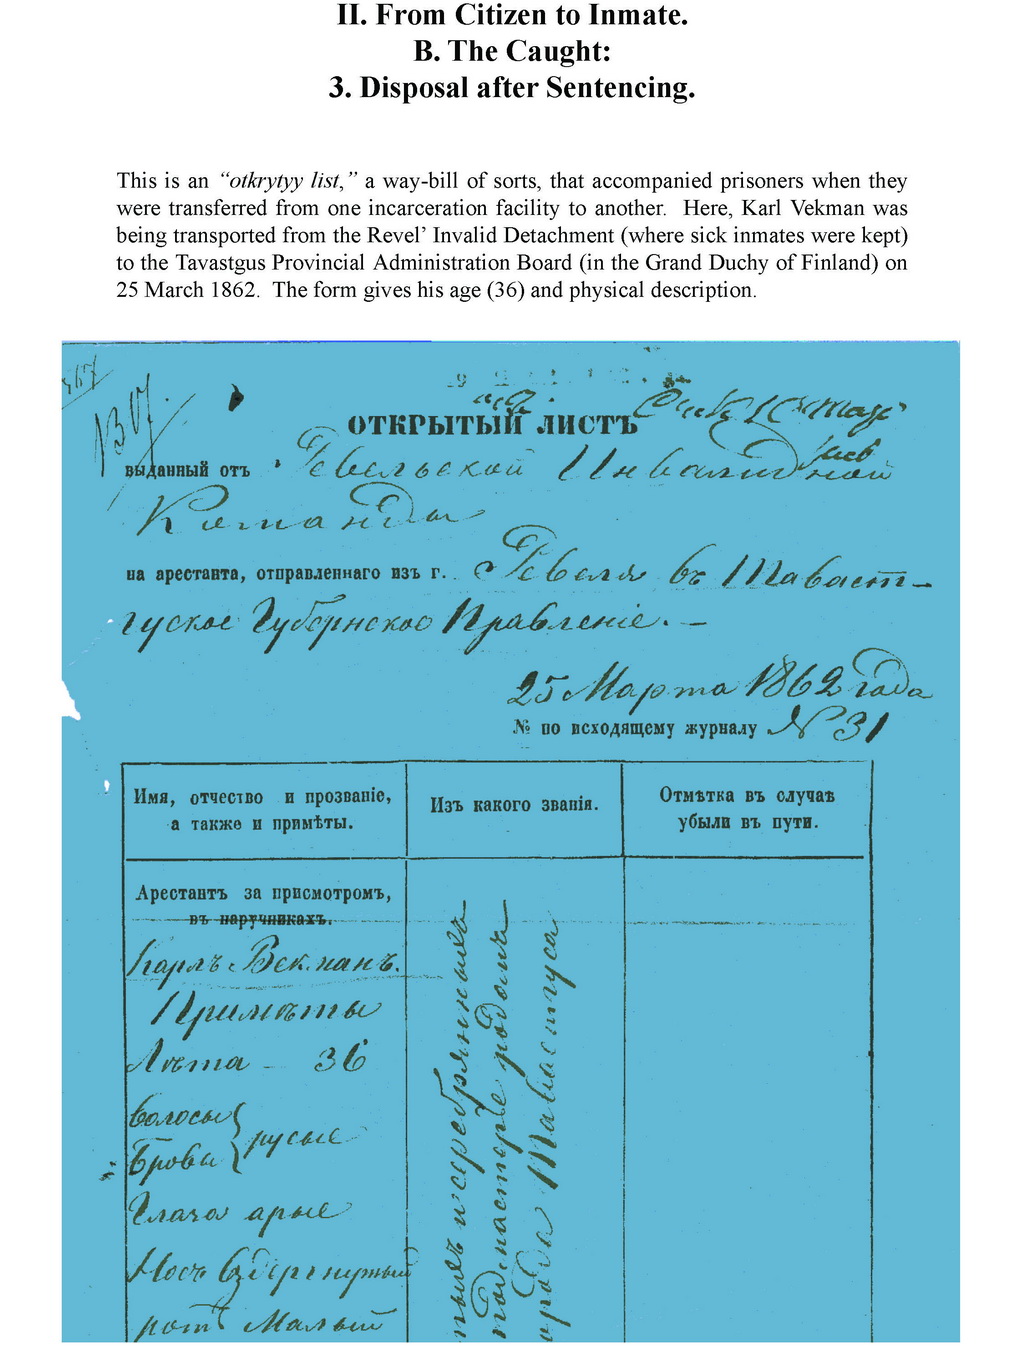 II. From Citizen to Inmate.
B. The Caught:
3. Disposal after Sentencing.
This is an “otkrytyy list,” a way-bill of sorts, that accompanied prisoners when they
were transferred from one incarceration facility to another. Here, Karl Vekman was
being transported from the Revel’ Invalid Detachment (where sick inmates were kept)
to the Tavastgus Provincial Administration Board (in the Grand Duchy of Finland) on
25 March 1862. The form gives his age (36) and physical description.
ОТКРЫТЫЙ ЛИСТЪ
выданный отъ Ревельской Инвалидной
Команды
на арестанта, отправленнаго изъ г. Ревеля въ Таваст-
гуское Губернское Правленіе. —
25 Марта 1862 года
№ по исходящему журналу № 31
Имя, отчество и прозваніе,
а также и примѣты.
Изъ какого званія.
Отмѣтка въ случаѣ
убыли въ пути.
Арестантъ за присмотромъ,
въ наручникахъ.
Карлъ Векманъ.
Примѣты
Лѣта - 36
Волосы
Брови } русые
Глаза
Носъ вздернутый
ротъ Малый
серебрянныхъ
подмастерье родомъ
города Тавастгуса